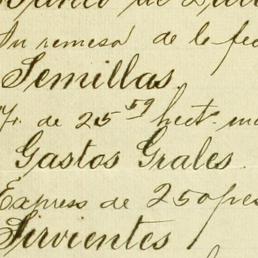 Banco de
Su remesa de la fec
Semillas
de 25.59 hect
Gastos Grales.
Express de 250 pes
Sirvientes